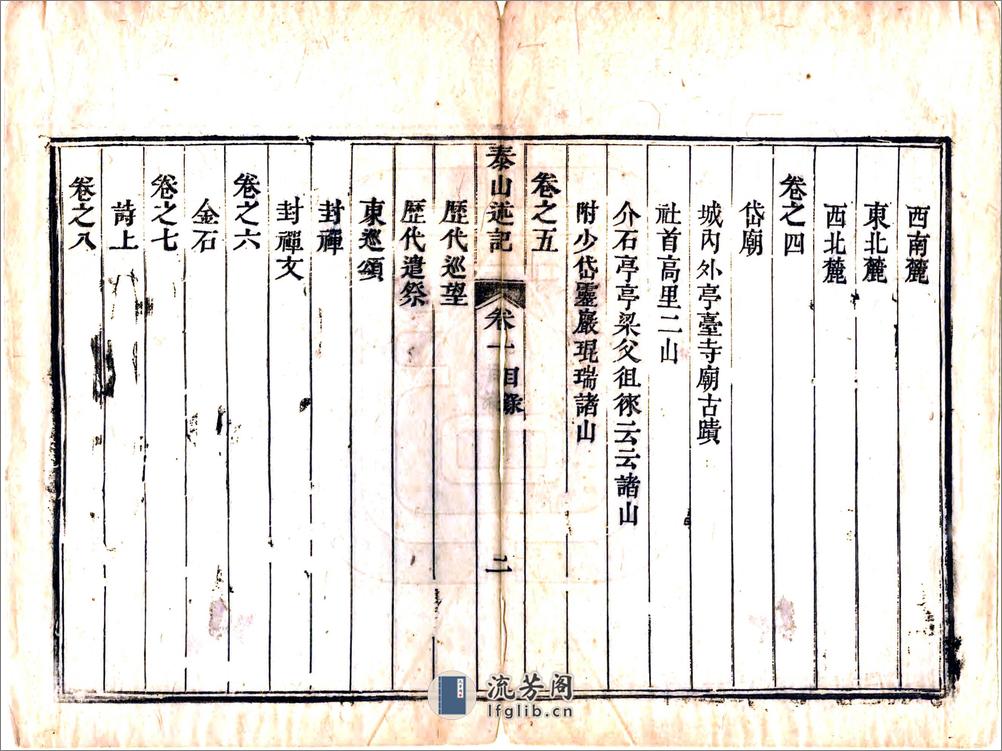 西南麓
東北麓
西北麓
卷之四
岱廟
城內外亭臺寺廟古蹟
社首高里二山
介石亭亭梁父徂徠云云諸山
附少岱靈巖琨瑞諸山
卷之五
泰山述記 卷一 目錄 二
歷代巡望
歷代遣祭
東巡頌
封禪
封禪文
卷之六
金石
卷之七
詩上
卷之八
流芳阁
lfglib.cn